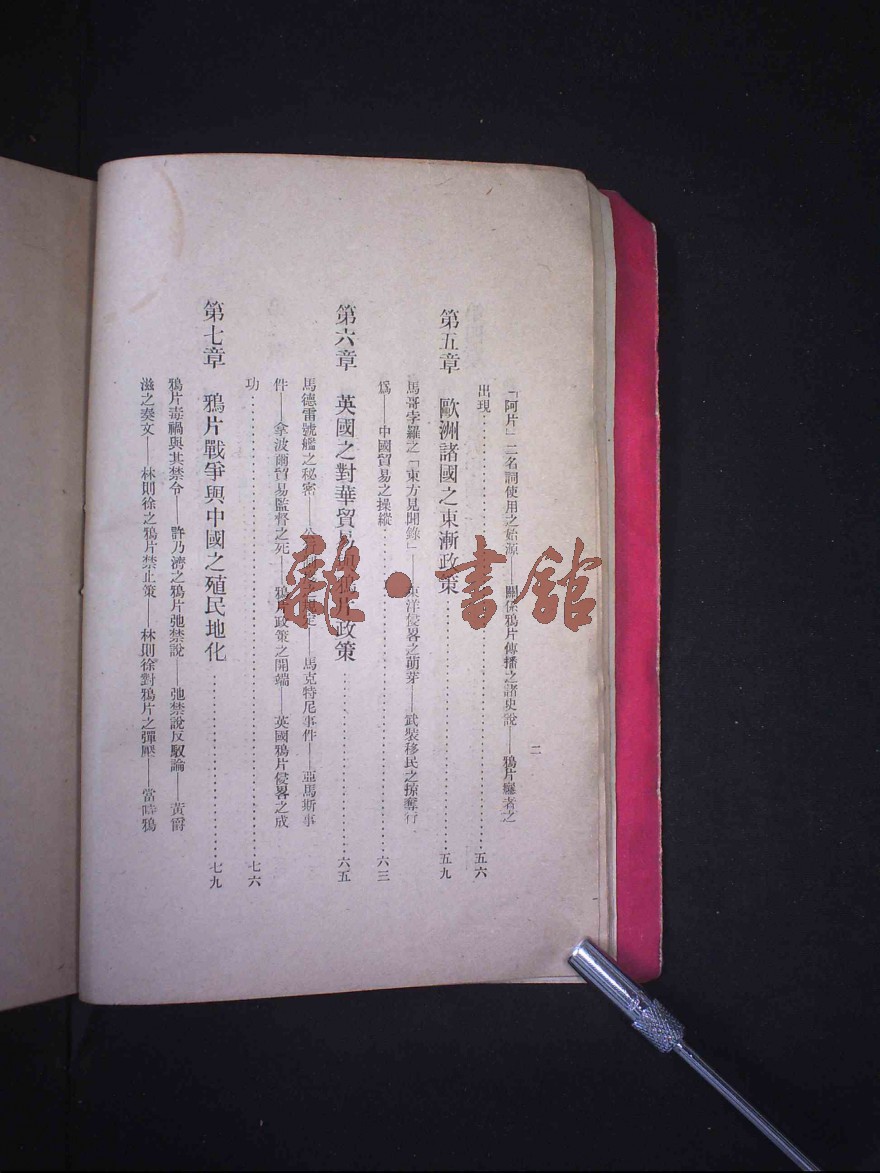 二
「阿片」二名詞使用之始源——關係鴉片傳播之諸史說——鴉片癮者之
出現……五六
第五章　歐洲諸國之東漸政策……五九
馬哥孛羅之「東方見聞錄」——東洋侵畧之萌芽——武裝移民之掠奪行
爲——中國貿易之操縱……六三
第六章　英國之對華貿易與鴉片政策……六五
馬德雷號艦之秘密——馬克特尼事件——亞馬斯事
件——拿波爾貿易監督之死——鴉片政策之開端——英國鴉片侵畧之成
功……七六
第七章　鴉片戰爭與中國之殖民地化……七九
鴉片毒禍與其禁令——許乃濟之鴉片弛禁說——弛禁說反駁論——黃爵
滋之奏文——林則徐之鴉片禁止策——林則徐對鴉片之彈壓——當時鴉
雜·書館